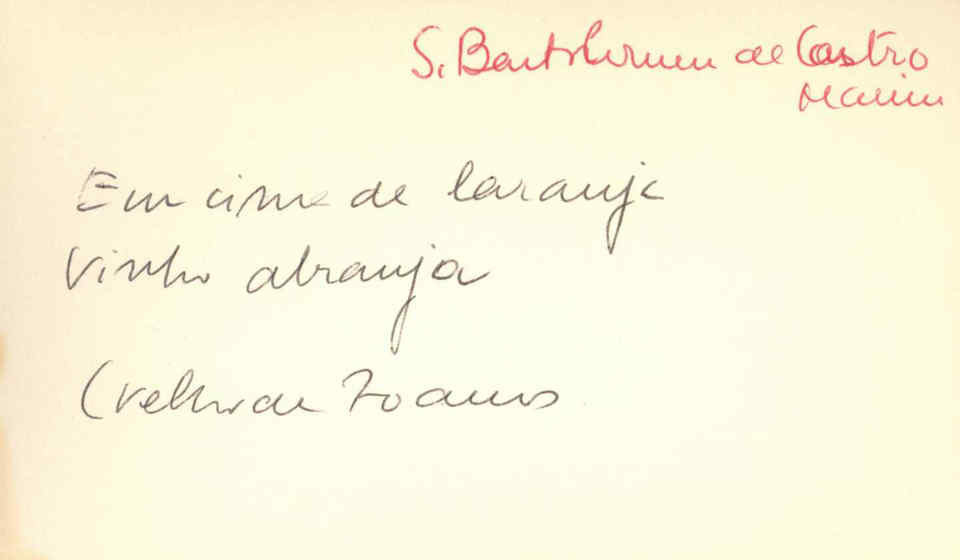 S. Bartolomeu de Castro
Marim
Em cima de laranja
Vinho abranja
(velho de 70 anos